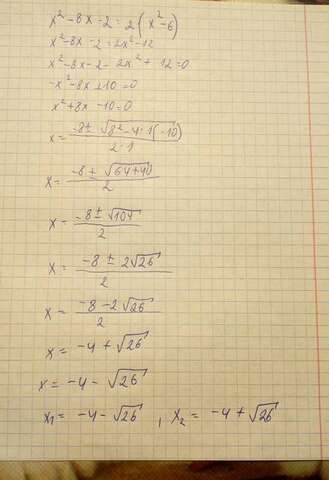 x² - 8x - 2 = 2(x² - 6)
x² - 8x - 2 = 2x² - 12
x² - 8x - 2 - 2x² + 12 = 0
-x² - 8x + 10 = 0
x² + 8x - 10 = 0
x = (-8 ± √(8² - 4 · 1(-10))) / (2 · 1)
x = (-8 ± √(64 + 40)) / 2
x = (-8 ± √104) / 2
x = (-8 ± 2√26) / 2
x = (-8 - 2√26) / 2
x = -4 + √26
x = -4 - √26
x₁ = -4 - √26 , x₂ = -4 + √26